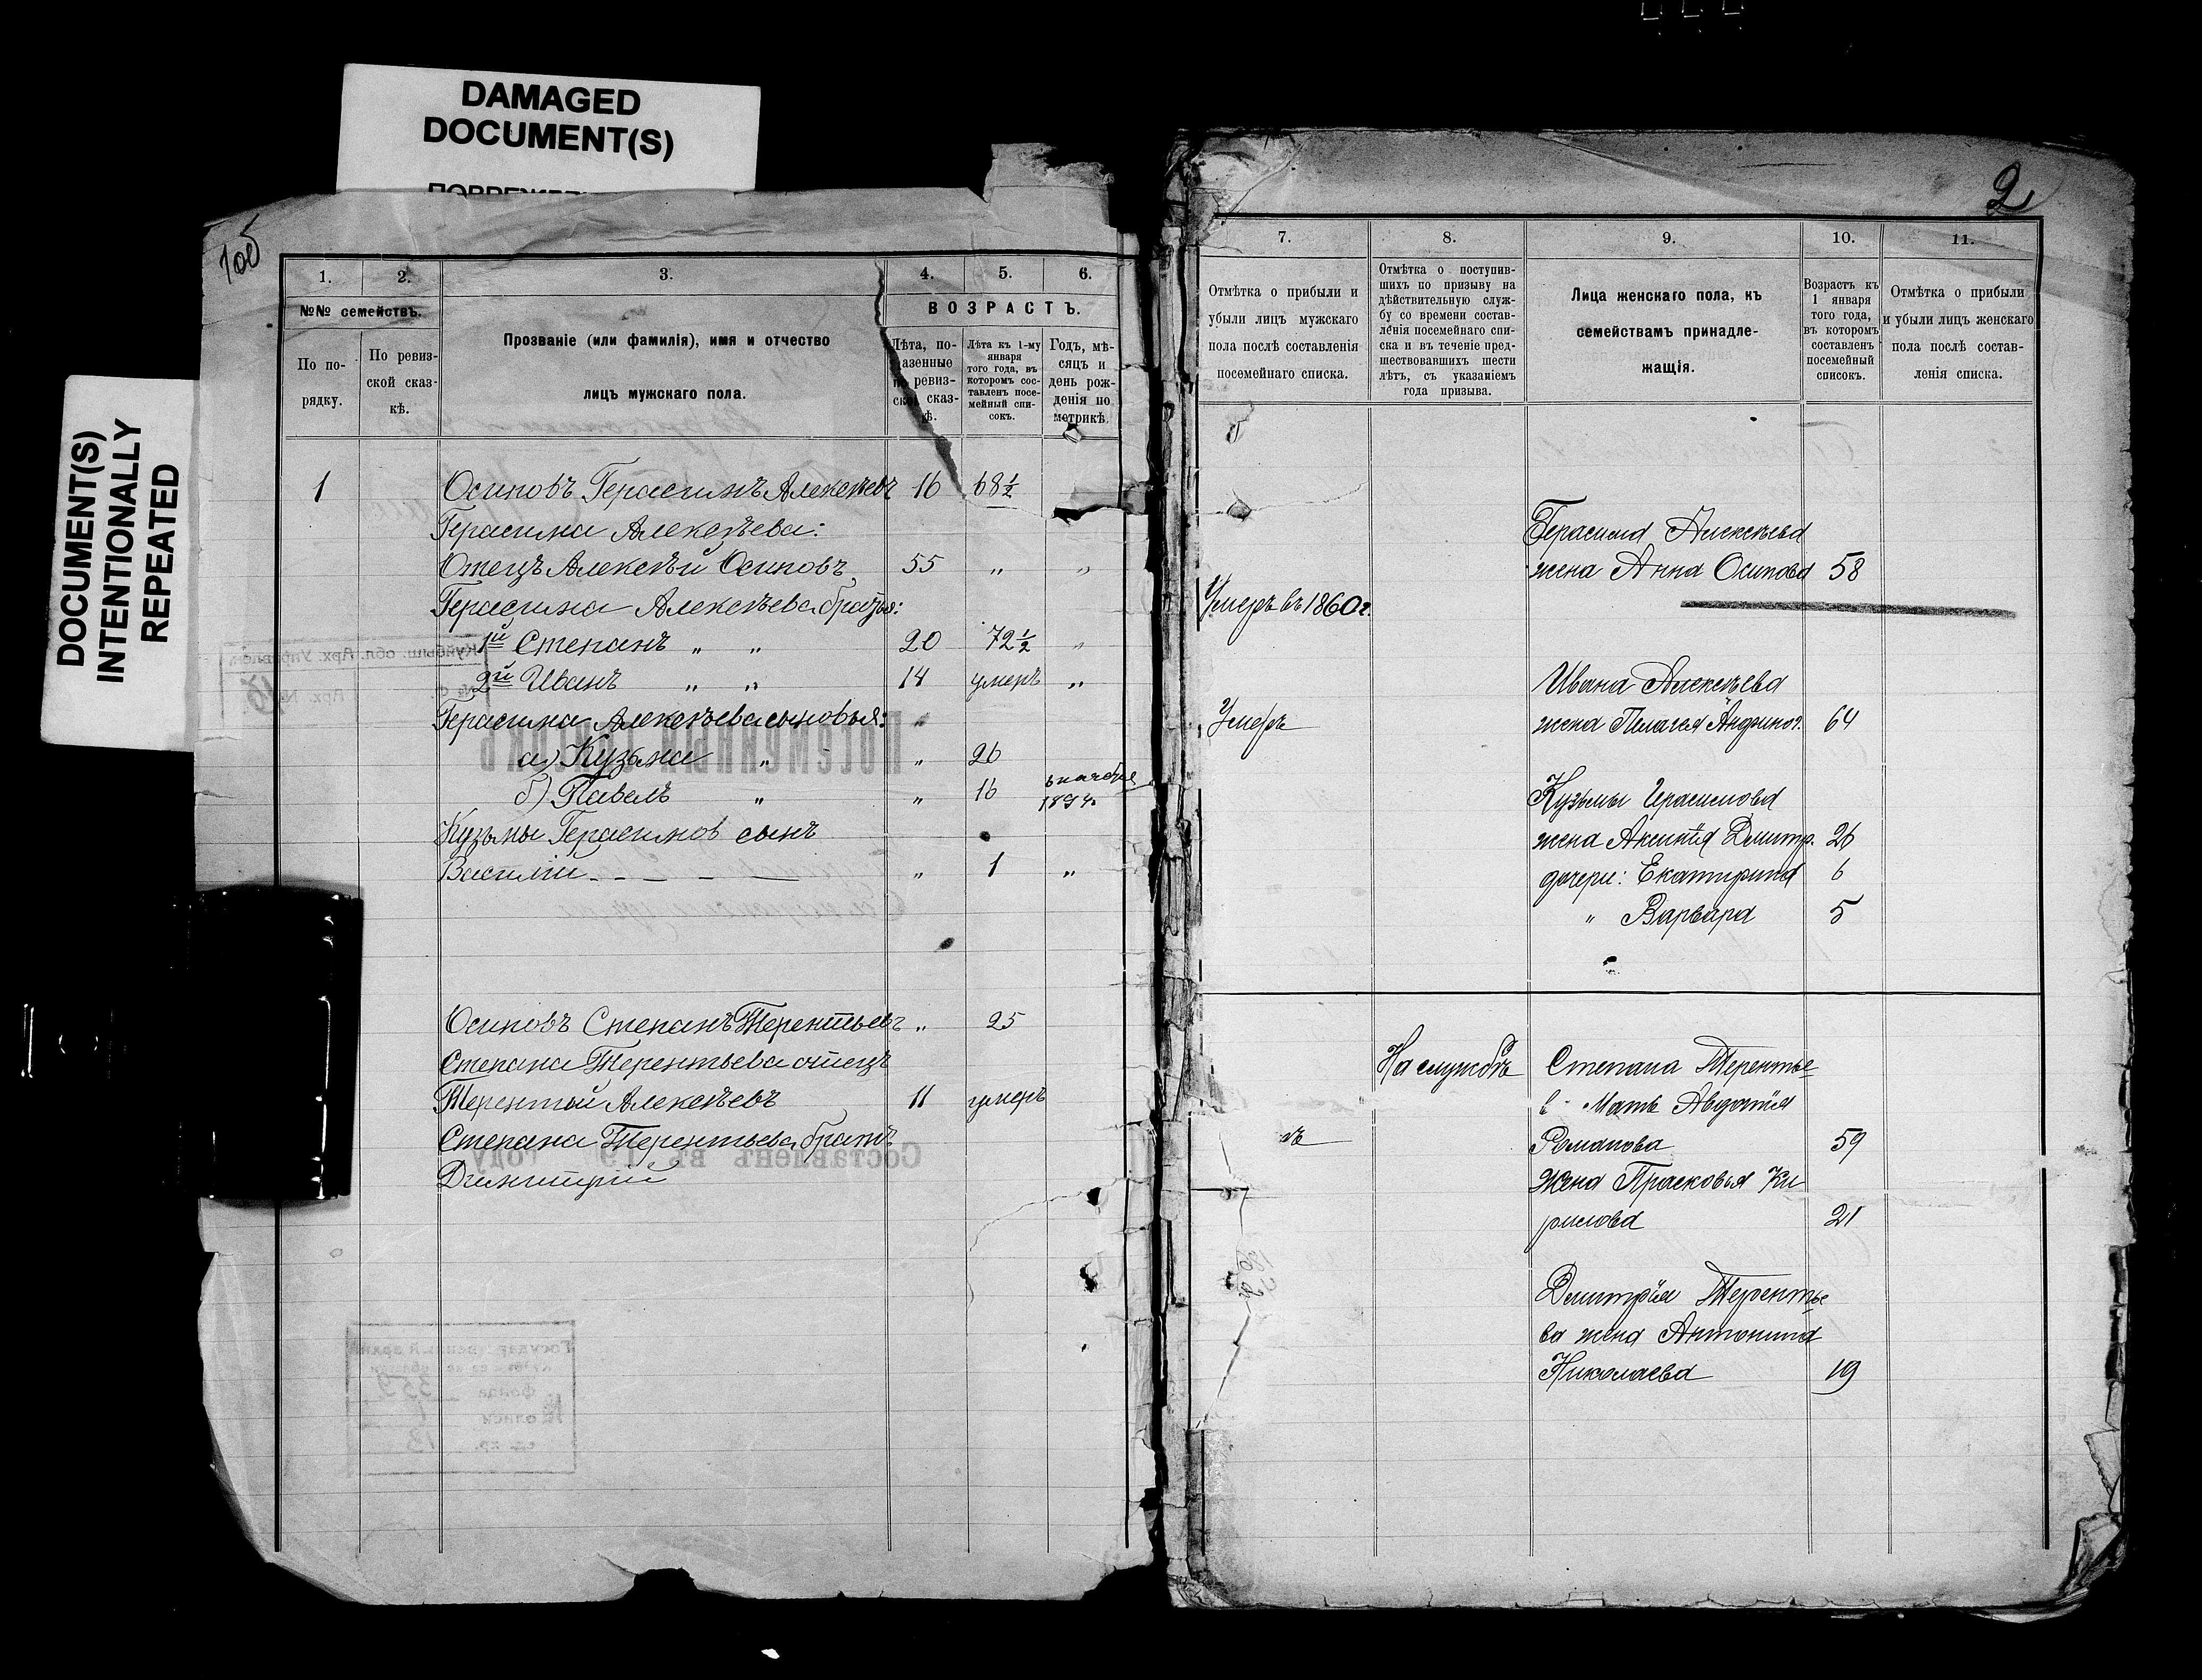 DAMAGED
DOCUMENT(S)
DOCUMENT(S)
INTENTIONALLY
REPEATED
1об
1.
2.
3.
4.
5.
6.
№№ семействъ.
По по-
рядку.
По ревиз-
ской сказ-
кѣ.
Прозваніе (или фамилія), имя и отчество
лицъ мужскаго пола.
ВОЗРАСТЪ.
Лѣта, по-
казенные
по ревиз-
ской сказ-
кѣ.
Лѣта къ 1-му
января
того года, въ
которомъ сос-
тавленъ посе-
мейный спи-
сокъ.
Годъ, мѣ-
сяцъ и
день рож-
денія по
метрикѣ.
1 Осиповъ Герасимъ Алексѣевъ 16 68½
Герасима Алексѣева:
Отецъ Алексѣй Осиповъ 55 „ „
Герасима Алексѣева братья:
1й Степанъ „ „ 20 72½ „
2й Иванъ „ „ 14 умеръ „
Герасима Алексѣева сыновья: „
а) Кузьма „ „ 26
б) Павелъ „ „ 16
Кузьмы Герасимов сынъ
Василій „ 1 „
Осиповъ Степанъ Терентьевъ „ 25
Степана Терентьева отецъ
Терентій Алексѣевъ 11 умеръ
Степана Терентьева братъ
Димитрій
2
7.
8.
9.
10.
11.
Отмѣтка о прибыли и
убыли лицъ мужскаго
пола послѣ составленія
посемейнаго списка.
Отмѣтка о поступив-
шихъ по призыву на
дѣйствительную служ-
бу со времени состав-
ленія посемейнаго спи-
ска и въ теченіе пред-
шествовавшихъ шести
лѣтъ, съ указаніемъ
года призыва.
Лица женскаго пола, къ
семействамъ принадле-
жащія.
Возрастъ къ
1 января
того года,
въ которомъ
составленъ
посемейный
списокъ.
Отмѣтка о прибыли
и убыли лицъ женскаго
пола послѣ состав-
ленія списка.
Герасима Алексѣева
жена Анна Осипова 58
Умеръ въ 1860 г.
Ивана Алексѣева
Умеръ жена Пелагея 64
Кузьмы Герасимова
жена Аксинья Дмитр. 26
дочери: Екатерина 6
„ Варвара 5
На службѣ Степана Терентье
в Мать Авдотія
Романова 59
Жена Прасковья Ки
рилова 21
Дмитрія Терентье
ва жена Антонина
Николаева 19